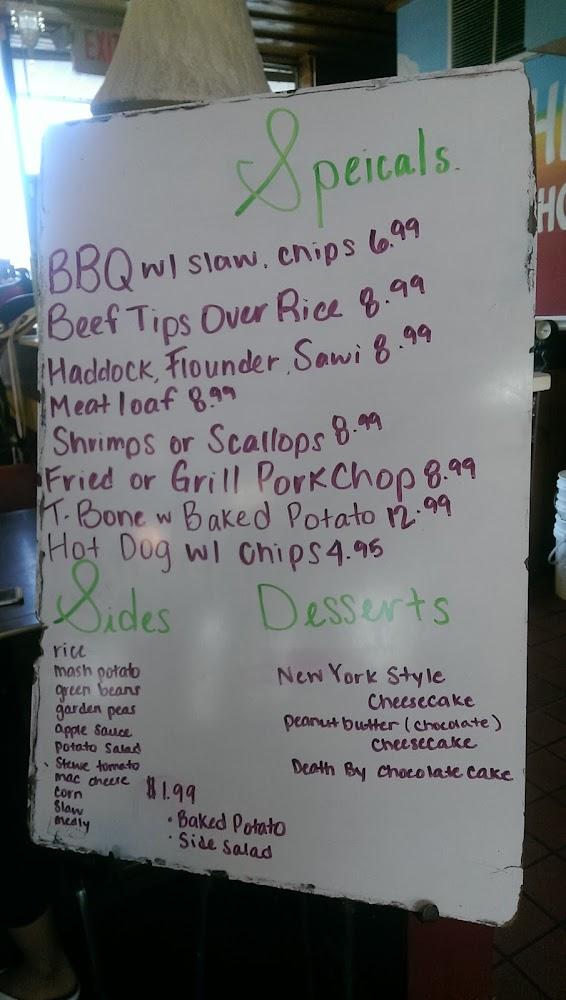 EXIT
Speicals.
BBQ w/ slaw, chips 6.99
Beef Tips Over Rice 8.99
Haddock, Flounder, Sawi 8.99
Meatloaf 8.99
Shrimps or Scallops 8.99
Fried or Grill PorkChop 8.99
T-Bone w Baked Potato 12.99
Hot Dog w/ chips 4.95
Sides
Desserts
rice
mash potato
green beans
garden peas
apple sauce
potato salad
Stewe tomato
mac cheese
corn
slaw
medly
$1.99
• Baked Potato
• Side Salad
New York Style
Cheesecake
Peanut butter (chocolate)
Cheesecake
Death By Chocolate Cake